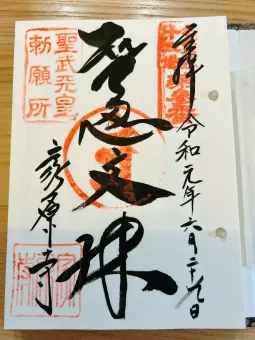 奉拝 令和元年六月二十七日
智恵文殊
聖武天皇
勅願所
家原寺